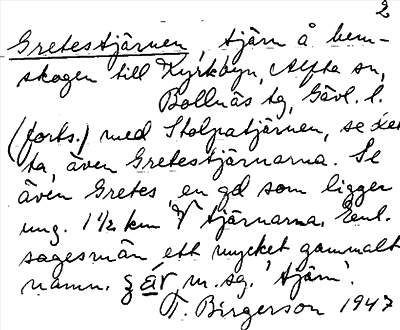 2
Gretestjärnen, tjärn å hem-
skogen till Kyrkbyn, Alfta sn,
Bollnäs tg, Gävl. l.
(forts.) med Stolpatjärnen, se
ta, även Gretestjärnarna. Se
även Gretes, en gd som ligger
ung. 1½ km V tjärnarna. Enl.
sagesmän ett mycket gammalt
namn. är m. sg. 'tjärn'.
T. Birgerson 1947